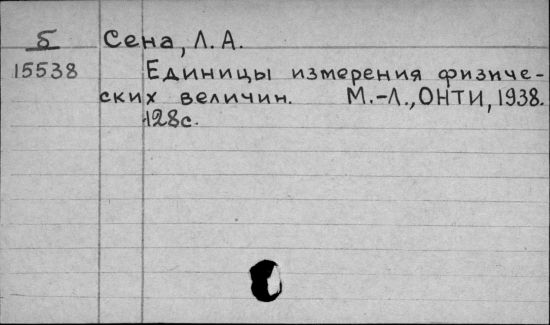 Б Сена, Л. А.
15538 Единицы измерения физиче-
ских величин. М.-Л., ОНТИ, 1938.
128с.